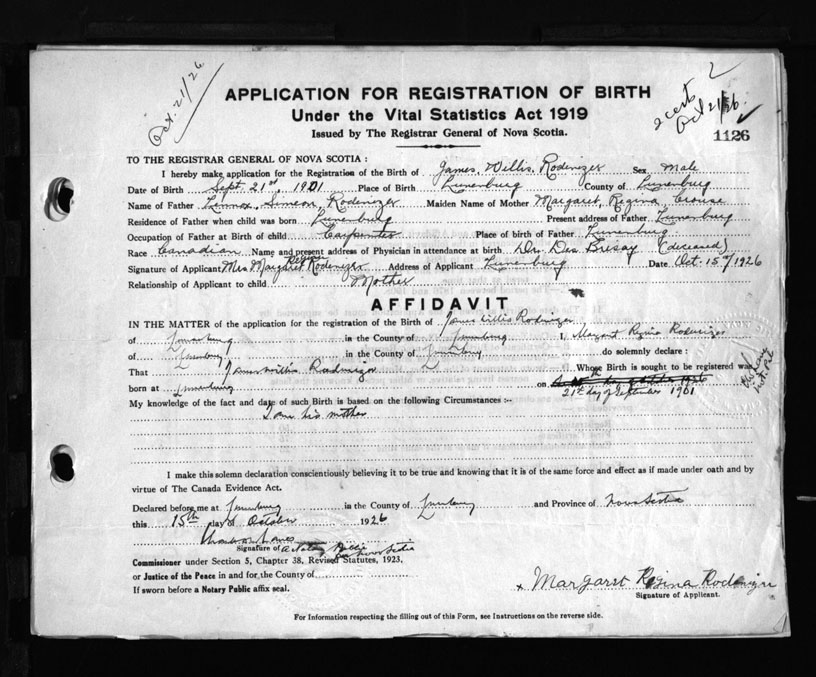 Oct. 21/26
2 certs
Oct 21/26
1126
APPLICATION FOR REGISTRATION OF BIRTH
Under the Vital Statistics Act 1919
Issued by The Registrar General of Nova Scotia.
TO THE REGISTRAR GENERAL OF NOVA SCOTIA :
I hereby make application for the Registration of the Birth of James, Willis, Rodenizer Sex Male
Date of Birth Sept. 21st, 1901 Place of Birth Lunenburg County of Lunenburg
Name of Father Lennox, Simeon, Rodenizer Maiden Name of Mother Margaret, Regina, Crouse
Residence of Father when child was born Lunenburg Present address of Father Lunenburg
Occupation of Father at Birth of child Carpenter Place of birth of Father Lunenburg
Race Canadian Name and present address of Physician in attendance at birth Dr. Des Brisay (deceased)
Signature of Applicant Mrs Margaret Regina Rodenizer Address of Applicant Lunenburg Date Oct. 15th/1926
Relationship of Applicant to child Mother
AFFIDAVIT
IN THE MATTER of the application for the registration of the Birth of James Willis Rodenizer
of Lunenburg in the County of Lunenburg I, Margaret Regina Rodenizer
of Lunenburg in the County of Lunenburg do solemnly declare :
That James Willis Rodenizer Whose Birth is sought to be registered was
born at Lunenburg on 21st day of September 1901
My knowledge of the fact and date of such Birth is based on the following Circumstances :-
I am his mother
I make this solemn declaration conscientiously believing it to be true and knowing that it is of the same force and effect as if made under oath and by
virtue of The Canada Evidence Act.
Declared before me at Lunenburg in the County of Lunenburg and Province of Nova Scotia
this 15th day of October 1926
Signature of a Notary Public Nova Scotia
Commissioner under Section 5, Chapter 38, Revised Statutes, 1923,
or Justice of the Peace in and for the County of
If sworn before a Notary Public affix seal.
x Margaret Regina Rodenizer
Signature of Applicant.
For Information respecting the filling out of this Form, see Instructions on the reverse side.